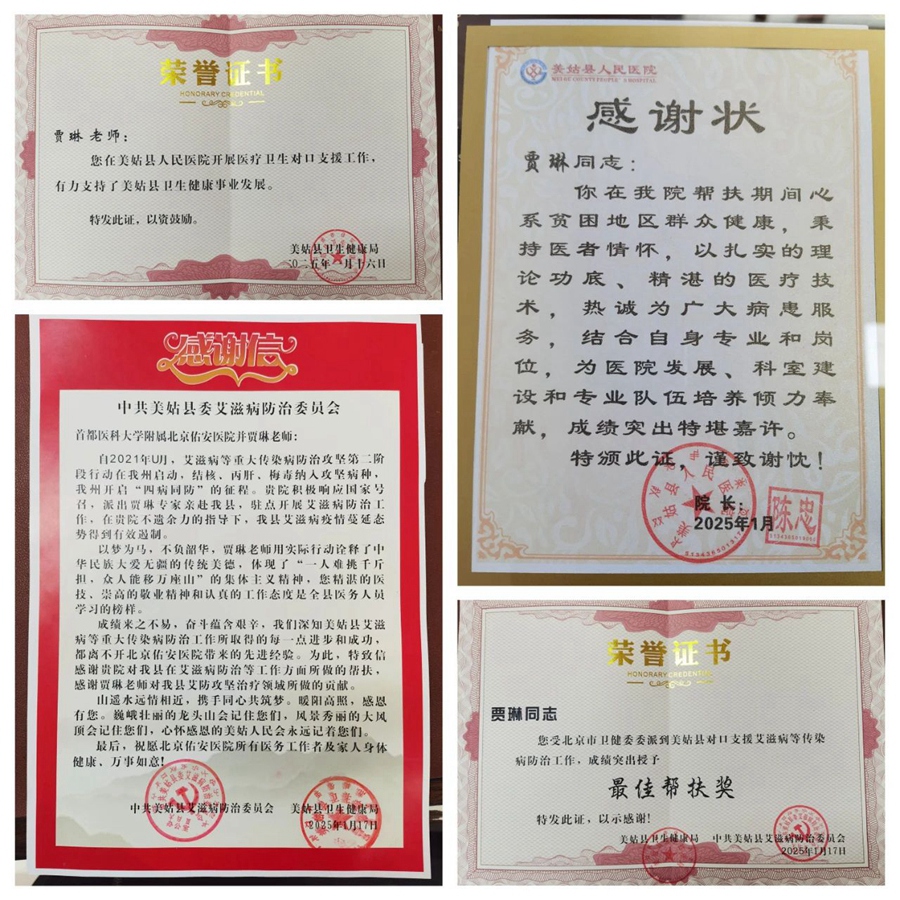 荣誉证书
HONORARY CREDENTIAL
贾琳 老师：
您在美姑县人民医院开展医疗卫生对口支援工作，
有力支持了美姑县卫生健康事业发展。
特发此证，以资鼓励。
美姑县卫生健康局
二〇二五年一月十六日
感谢信
中共美姑县委艾滋病防治委员会
首都医科大学附属北京佑安医院并贾琳老师：
自2021年U月，艾滋病等重大传染病防治攻坚第二阶
段行动在我州启动，结核、丙肝、梅毒纳入攻坚病种，
我州开启“四病同防”的征程。贵院积极响应国家号
召，派出贾琳专家亲赴我县，驻点开展艾滋病防治工
作，在贵院不遗余力的指导下，我县艾滋病疫情蔓延态
势得到有效遏制。
以梦为马，不负韶华，贾琳老师用实际行动诠释了中
华民族大爱无疆的传统美德，体现了“一人难挑千斤
担，众人能移万座山”的集体主义精神，您精湛的医
技、崇高的敬业精神和认真的工作态度是全县医务人员
学习的榜样。
成绩来之不易，奋斗蕴含艰辛，我们深知美姑县艾滋
病等重大传染病防治工作所取得的每一点进步和成功，
都离不开北京佑安医院带来的先进经验。为此，特致信
感谢贵院对我县在艾滋病防治等工作方面所做的帮扶，
感谢贾琳老师对我县艾防攻坚治疗领域所做的贡献。
山遥水远情相近，携手同心共筑梦。暖阳高照，感恩
有您。巍峨壮丽的龙头山会记住您们，风景秀丽的大风
顶会记住您们，心怀感恩的美姑人民会永远记着您们。
最后，祝愿北京佑安医院所有医务工作者及家人身体
健康、万事如意！
中共美姑县艾滋病防治委员会 美姑县卫生健康局
2025年1月17日
美姑县人民医院
感谢状
贾琳同志：
你在我院帮扶期间心
系贫困地区群众健康，秉
持医者情怀，以扎实的理
论功底、精湛的医疗技
术，热诚为广大病患服
务，结合自身专业和岗
位，为医院发展、科室建
设和专业队伍培养倾力奉
献，成绩突出特堪嘉许。
特颁此证，谨致谢忱！
院 长：
陈忠
2025年1月
荣誉证书
HONORARY CREDENTIAL
贾琳同志
您受北京市卫健委委派到美姑县对口支援艾滋病等传染
病防治工作，成绩突出授予
最佳帮扶奖
特发此证，以示感谢！
美姑县卫生健康局 中共美姑县艾滋病防治委员会
2025年1月17日